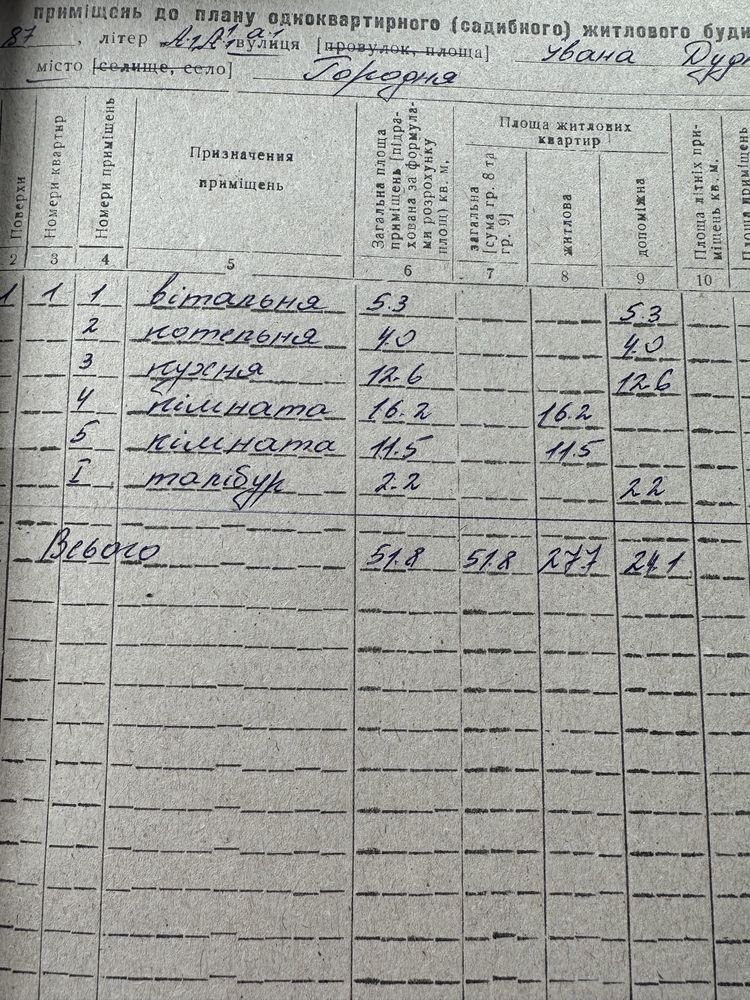 приміщень до плану одноквартирного (садибного) житлового буди
87 , літер А-1, А¹-1, а-1 вулиця [провулок, площа] Івана Дудк
місто [селище, село] Городня
Поверхи
Номери квартир
Номери приміщень
Призначення
приміщень
Загальна площа
приміщень [підра-
хована за формула-
ми розрохунку
площ) кв. м.
Площа житлових
квартир
загальна
[сума гр. 8 та
гр. 9]
житлова
допоміжна
Площа літніх при-
міщень кв. м.
Площа приміщень
2 3 4 5 6 7 8 9 10
1 1 1 вітальня 5.3 5.3
2 котельня 4.0 4.0
3 кухня 12.6 12.6
4 кімната 16.2 16.2
5 кімната 11.5 11.5
I тамбур 2.2 2.2
Всього 51.8 51.8 27.7 24.1